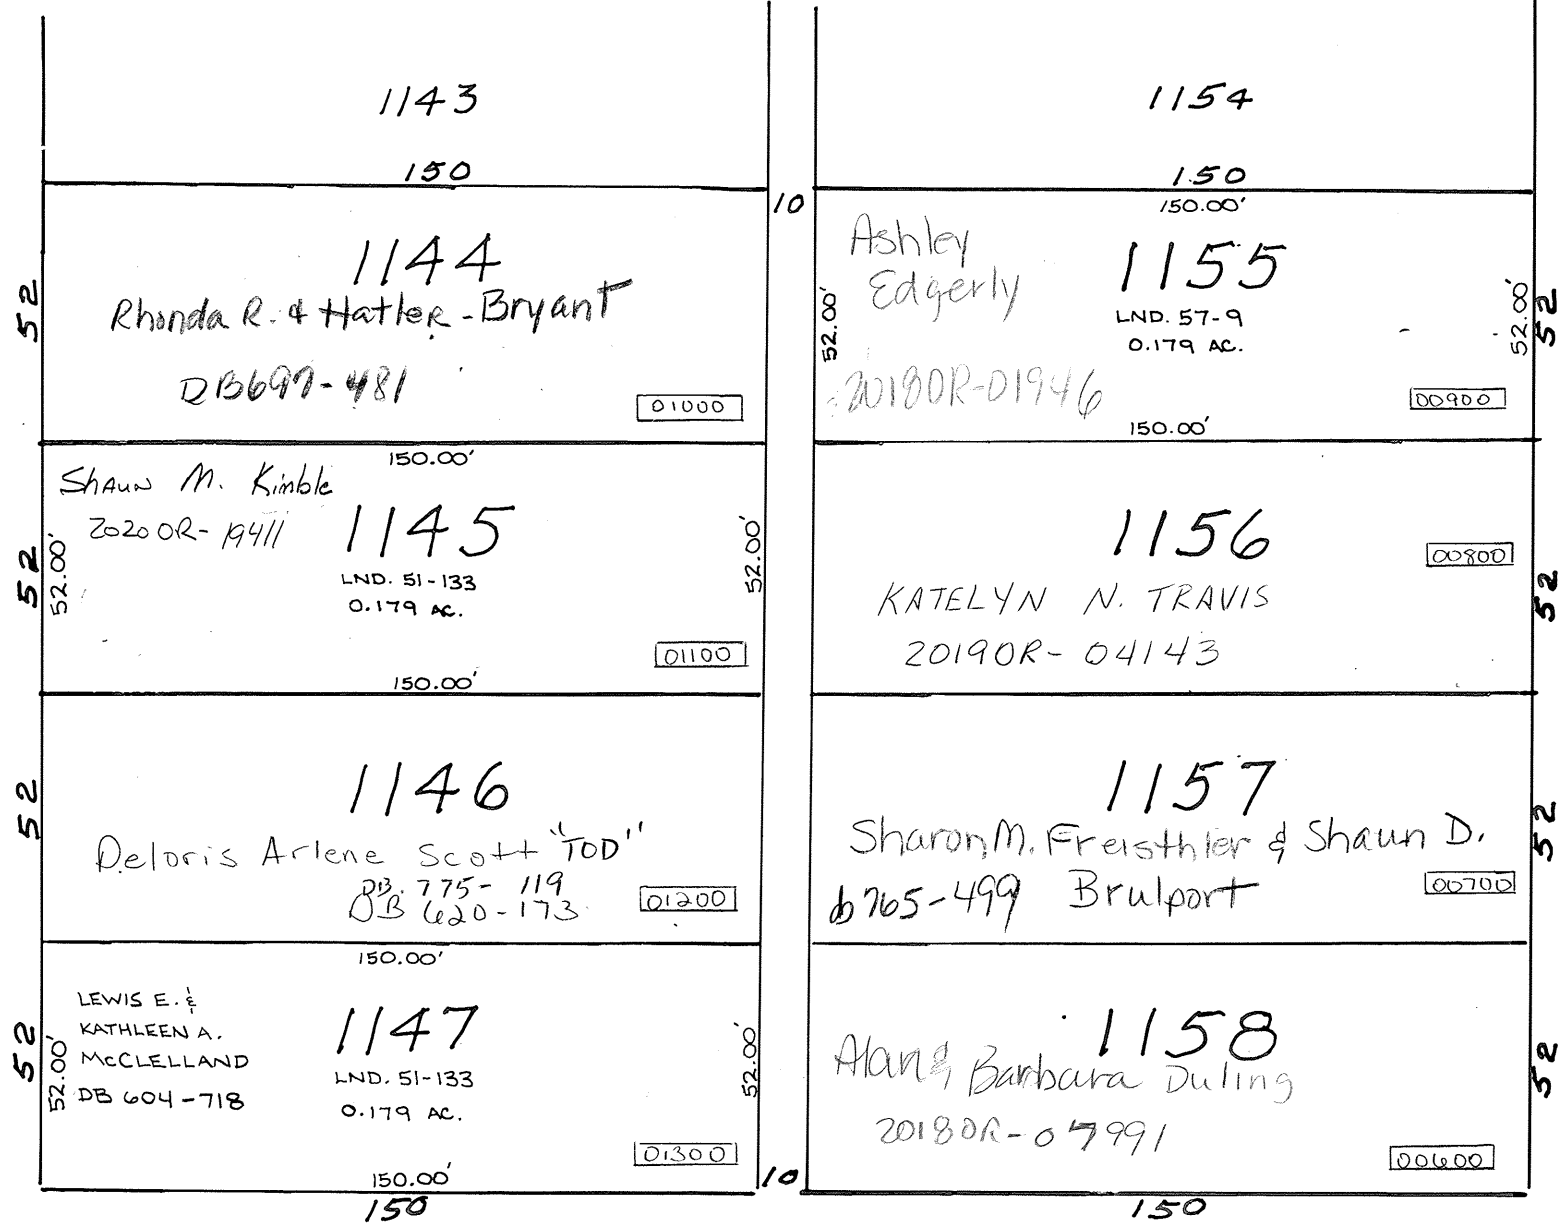 1143
150
52
1144
Rhonda R. & Hatler-Bryant
DB697-481
01000
150.00'
Shaun M. Kimble
2020OR-19411
1145
52
52.00'
52.00'
LND. 51-133
0.179 AC.
01100
150.00'
52
1146
Deloris Arlene Scott "TOD"
DB. 775-119
DB 620-173
01200
150.00'
LEWIS E. &
KATHLEEN A.
McCLELLAND
DB 604-718
1147
52
52.00'
52.00'
LND. 51-133
0.179 AC.
01300
150.00'
150
10
10
1154
150
150.00'
Ashley
Edgerly
1155
52.00'
52.00'
52
LND. 57-9
0.179 AC.
2018OR-01946
00900
150.00'
1156
00800
52
KATELYN N. TRAVIS
2019OR-04143
1157
Sharon M. Freisthler & Shaun D.
db765-499 Brulport
52
00700
1158
Alan & Barbara Duling
2018OR-07991
52
00600
150